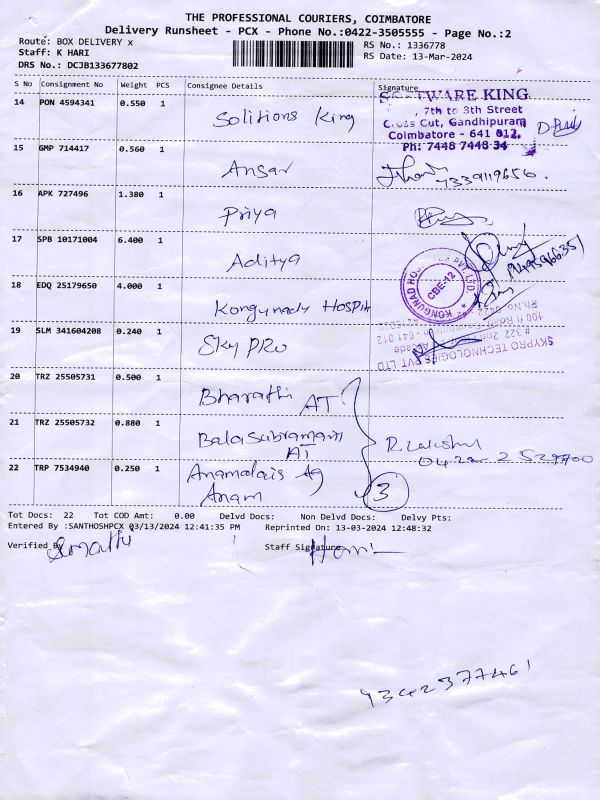 THE PROFESSIONAL COURIERS, COIMBATORE
Delivery Runsheet - PCX - Phone No.:0422-3505555 - Page No.:2
Route: BOX DELIVERY x
RS No.: 1336778
Staff: K HARI
RS Date: 13-Mar-2024
DRS No.: DCJB133677802
S No Consignment No Weight PCS Consignee Details Signature
14 PON 4594341 0.550 1 Solitions King
SOFTWARE KING
7th to 8th Street
Cross Cut, Gandhipuram
Coimbatore - 641 012.
Ph: 7448 7448 34
15 GMP 714417 0.560 1 Ansar
7339119656.
16 APK 727496 1.380 1 Priya
17 SPB 10171004 6.400 1 Aditya
CBE-12
18 EDQ 25179650 4.000 1 Kongunady Hospit
19 SLM 341604208 0.240 1 Sky PRO
SKYPRO TECHNOLOGIES PVT LTD
20 TRZ 25505731 0.500 1 Bharathi AT
21 TRZ 25505732 0.880 1 Balasubramani AT
R. Lakshmi
22 TRP 7534940 0.250 1 Anamalais Ag
Anam
3
Tot Docs: 22 Tot COD Amt: 0.00 Delvd Docs: Non Delvd Docs: Delvy Pts:
Entered By :SANTHOSHPCX 03/13/2024 12:41:35 PM Reprinted On: 13-03-2024 12:48:32
Verified By Staff Signature
Hari
9342377461